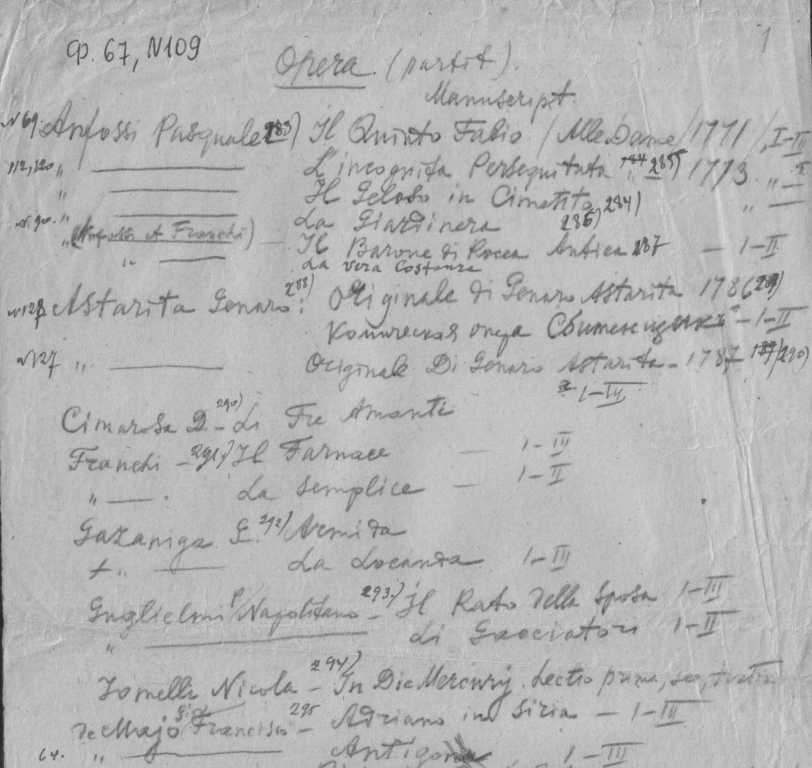 Ф. 67, N109
1
Opera (partit).
Manuscript.
N 69. Anfossi Pasquale 283) Il Quinto Fabio / Alle Dame / 1771 / I-III
112, 120 " — L'incognita Persequitata 285) 1773 " —
" — Il Geloso in Cimento 284) " —
N. 90. " — La Giardinera 286)
" (Anfossi et Franchi) — Il Barone di Rocca Antica 287 — I-II
" — La vera Costanza
N 128 Astarita Genaro 288): Originale di Genaro Astarita 1786
Комическая опера Сбитенщикъ — I-II
N 127 " — Originale Di Genaro Astarita — 1787 290)
I-III
Cimarosa D. 290) — Li Tre Amanti
Franchi — 291) Il Farnace — I-III
" — . La Semplice — I-II
Gazaniga G. 292) Armida
" — La Locanda I-III
Guglielmi P/Napolitano — 293) Il Rato della Sposa I-III
" — Li Cacciatori I-II
Jomelle Nicola — 294) In Die Mercurij. Lectio prima,
De Majo Francisco 295 — Adriano in Siria — I-III
64. " — Antigona I-III